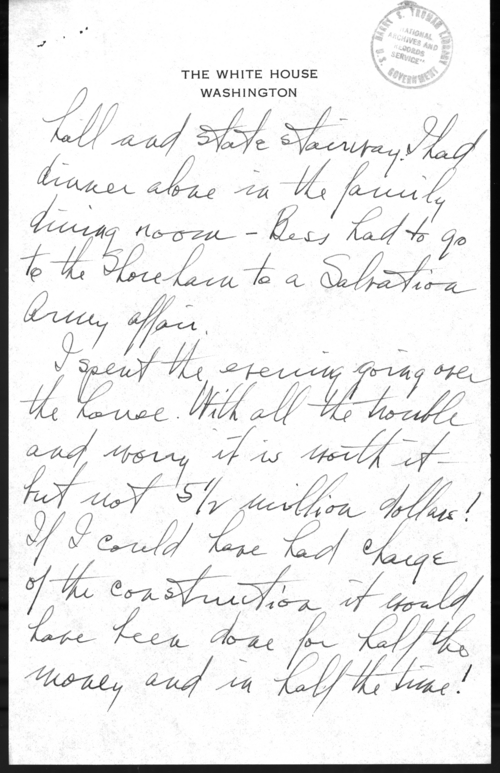 HARRY S. TRUMAN LIBRARY
"NATIONAL
ARCHIVES AND
RECORDS
SERVICE"
U.S. GOVERNMENT
THE WHITE HOUSE
WASHINGTON
hall and state stairway. I had
dinner alone in the family
dining room – Bess had to go
to the Shoreham to a Salvation
Army affair.
I spent the evening going over
the house. With all the trouble
and worry it is worth it –
but not 5 1/2 million dollars!
If I could have had charge
of the construction it would
have been done for half the
money and in half the time!